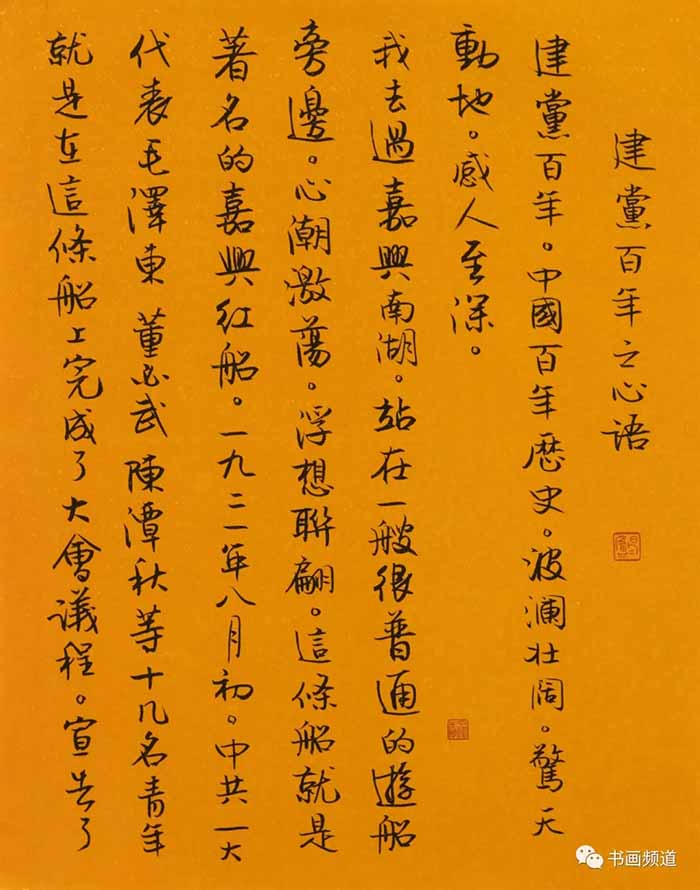 建黨百年之心語
建黨百年。中國百年歷史。波瀾壯阔。驚天
動地。感人至深。
我去過嘉興南湖。站在一艘很普通的遊船
旁邊。心潮激蕩。浮想聯翩。這條船就是
著名的嘉興红船。一九二一年八月初。中共一大
代表毛澤東 董必武 陳潭秋等十几名青年
就是在這條船上完成了大會議程。宣告了
书画频道